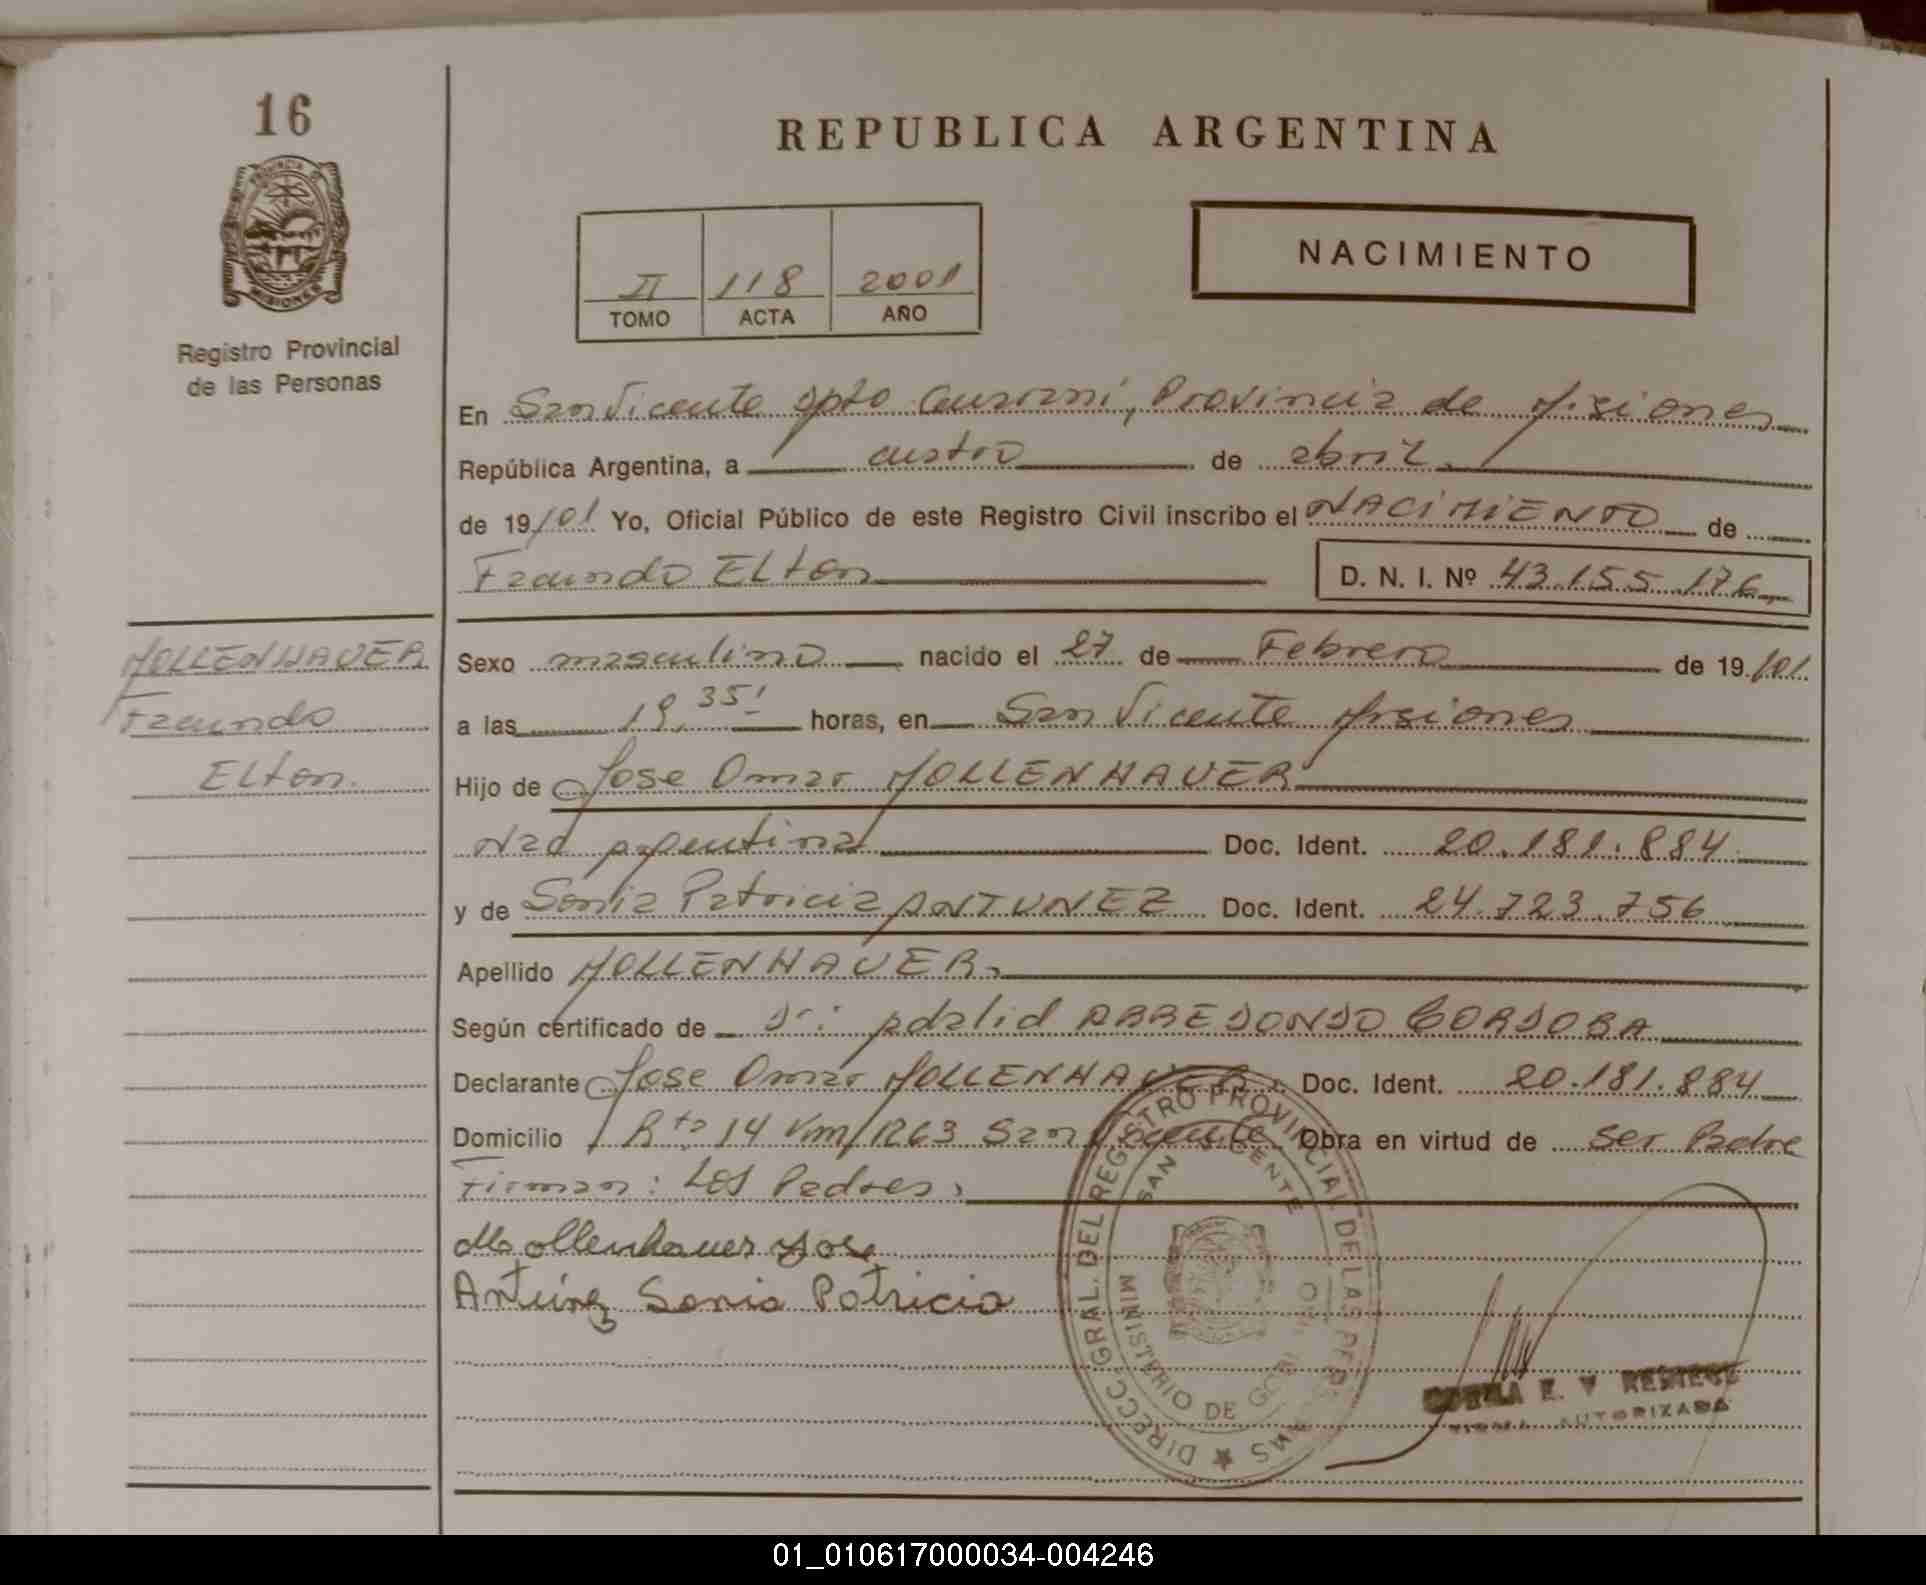 16
PROVINCIA DE
MISIONES
Registro Provincial
de las Personas
REPUBLICA ARGENTINA
II 118 2001
TOMO ACTA AÑO
NACIMIENTO
En San Vicente Dpto Guaraní, Provincia de Misiones
República Argentina, a cuatro de abril.
de 19/01. Yo, Oficial Público de este Registro Civil inscribo el NACIMIENTO de
Facundo ELton D. N. I. Nº 43.155.176
MOLLENHAUER
Facundo
ELton.
Sexo masculino nacido el 27 de Febrero de 19/01.
a las 19,35' horas, en San Vicente Misiones
Hijo de Jose Omar MOLLENHAUER
Nac Argentina Doc. Ident. 20.181.884
y de Sonia Patricia ANTUNEZ Doc. Ident. 24.723.756
Apellido MOLLENHAUER.
Según certificado de Dr: Adalid ARREDONDO CORDOBA
Declarante Jose Omar MOLLENHAUER. Doc. Ident. 20.181.884
Domicilio Rta 14 Km/1263 San Vicente Obra en virtud de ser Padre
Firman: Los Padres.
Mollenhauer Jose
Antúnez Sonia Patricia
DIRECC. GRAL. DEL REGISTRO PROVINCIAL DE LAS PERSONAS
SAN VICENTE
MINISTERIO DE GOBIERNO
E. V.
FIRMA AUTORIZADA
01_010617000034-004246